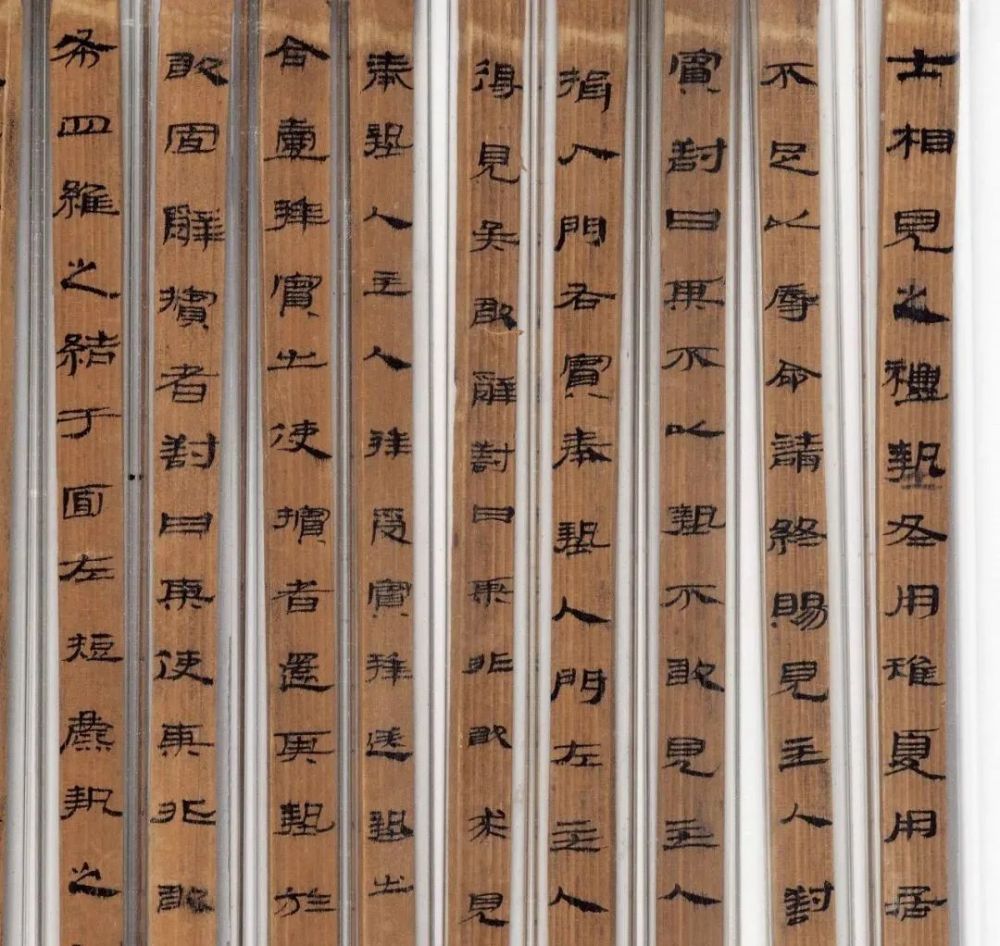 士相見之禮墊冬用雉夏用居
不足以辱命請終賜見主人對
賓對曰某不以墊不敢見主人
揖入門右賓奉墊入門左主人
得見矣敢辭對曰某非敢求見
奉墊入主人拜受賓拜送墊出
合壹拜賓出使擯者還其墊於
敢固辭擯者對曰某使某非敢
布四維之結于面左短麃執之